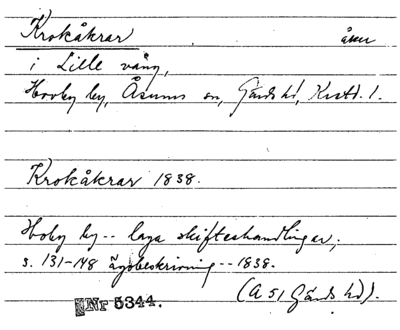 Krokåkrar åker
i Lille vång,
Hovby by, Åsums sn, Gärds hd, Krist. l.
Krokåkrar 1838.
Hoby by -- laga skifteshandlingar,
s. 131-148 ägobeskrivning -- 1838.
(A 51 Gärds hd).
Nr 5344.